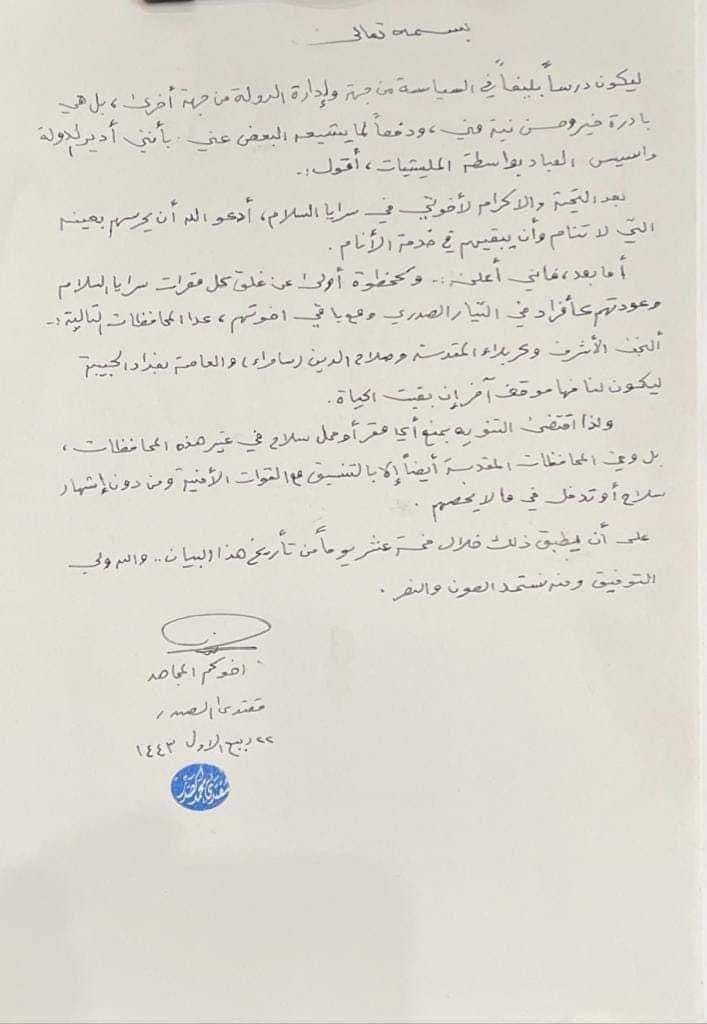 بسمه تعالى
ليكون درساً بليغاً في السياسة من جهة وإدارة الدولة من جهة أخرى ، بل هي
بادرة خير وحسن نية مني ، ودفعاً لما يشيعه البعض عني . بأنني أدير الدولة
واسيس العباد بواسطة المليشيات ، أقول :.
بعد التحية والاكرام لأخوتي في سرايا السلام ، أدعو الله أن يحرسهم بعينه
التي لا تنام وأن يبقيهم في خدمة الأنام .
أما بعد ، فإنني أعلن :. وكخطوة أولى عن غلق كل مقرات سرايا السلام
وعودتهم كأفراد في التيار الصدري ومع باقي اخوتهم ، عدا المحافظات التالية :.
النجف الأشرف وكربلاء المقدسة وصلاح الدين (سامراء) والعاصمة بغداد الحبيبة
ليكون لنا فيها موقف آخر إن بقيت الحياة .
ولذا اقتضى التنويه بمنع أي مقر أو حمل سلاح في غير هذه المحافظات ،
بل وفي المحافظات المقدسة أيضاً إلا بالتنسيق مع القوات الأمنية ومن دون إشهار
سلاح أو تدخل في ما لا يخصهم .
على أن يطبق ذلك خلال خمسة عشر يوماً من تأريخ هذا البيان .. والله ولي
التوفيق ومنه نستمد العون والنصر .
اخوكم المجاهد
مقتدى الصدر
٢٢ ربيع الاول ١٤٤٣